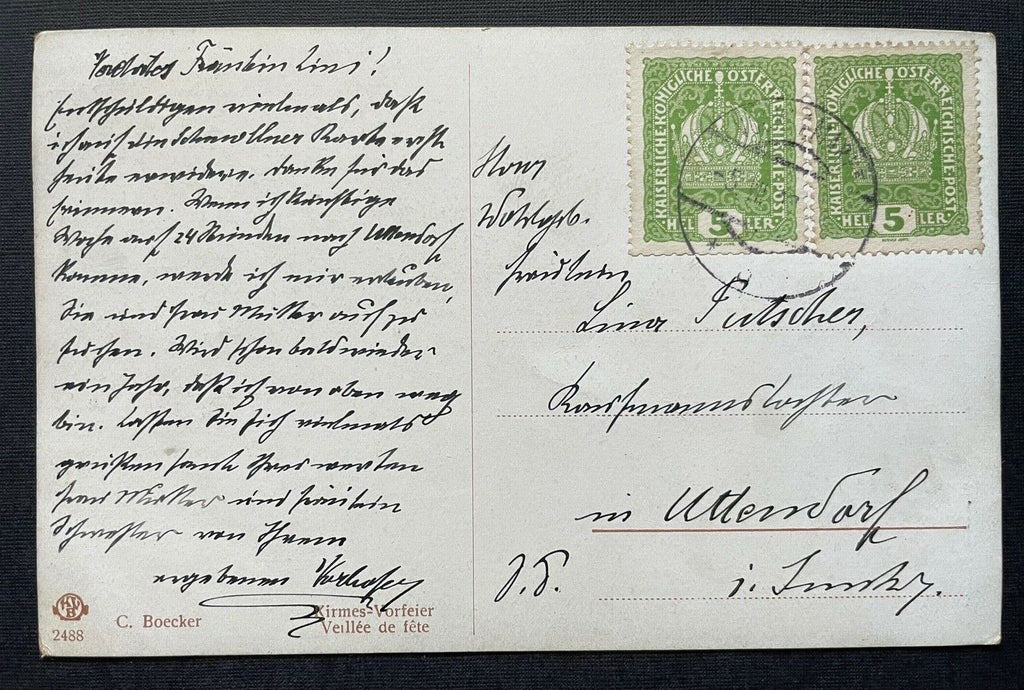 Fräulein Lini!
Entschuldigen vielmals, daß
ich auf die Schmollner Karte erst
heute erwidere. Danke für das
Erinnern. Wenn ich künftige
Woche auf 24 Stunden nach Uttendorf
komme, werde ich mir erlauben,
Sie und Frau Mutter auf zu
suchen. Wird schon bald wieder
ein Jahr, daß ich von oben weg
bin. Lassen Sie sich vielmals
grüßen samt Ihrer werten
Frau Mutter und Fräulein
Schwester von Ihrem
ergebenen
KVB
2488
C. Boecker
Kirmes-Vorfeier
Veillée de fête
KAISERLICHE KÖNIGLICHE ÖSTERREICHISCHE POST
5
HELLER
KAISERLICHE KÖNIGLICHE ÖSTERREICHISCHE POST
5
HELLER
Wohlgeb.
Fräulein
Lina Putscher,
Kaufmannstochter
in Uttendorf
i.